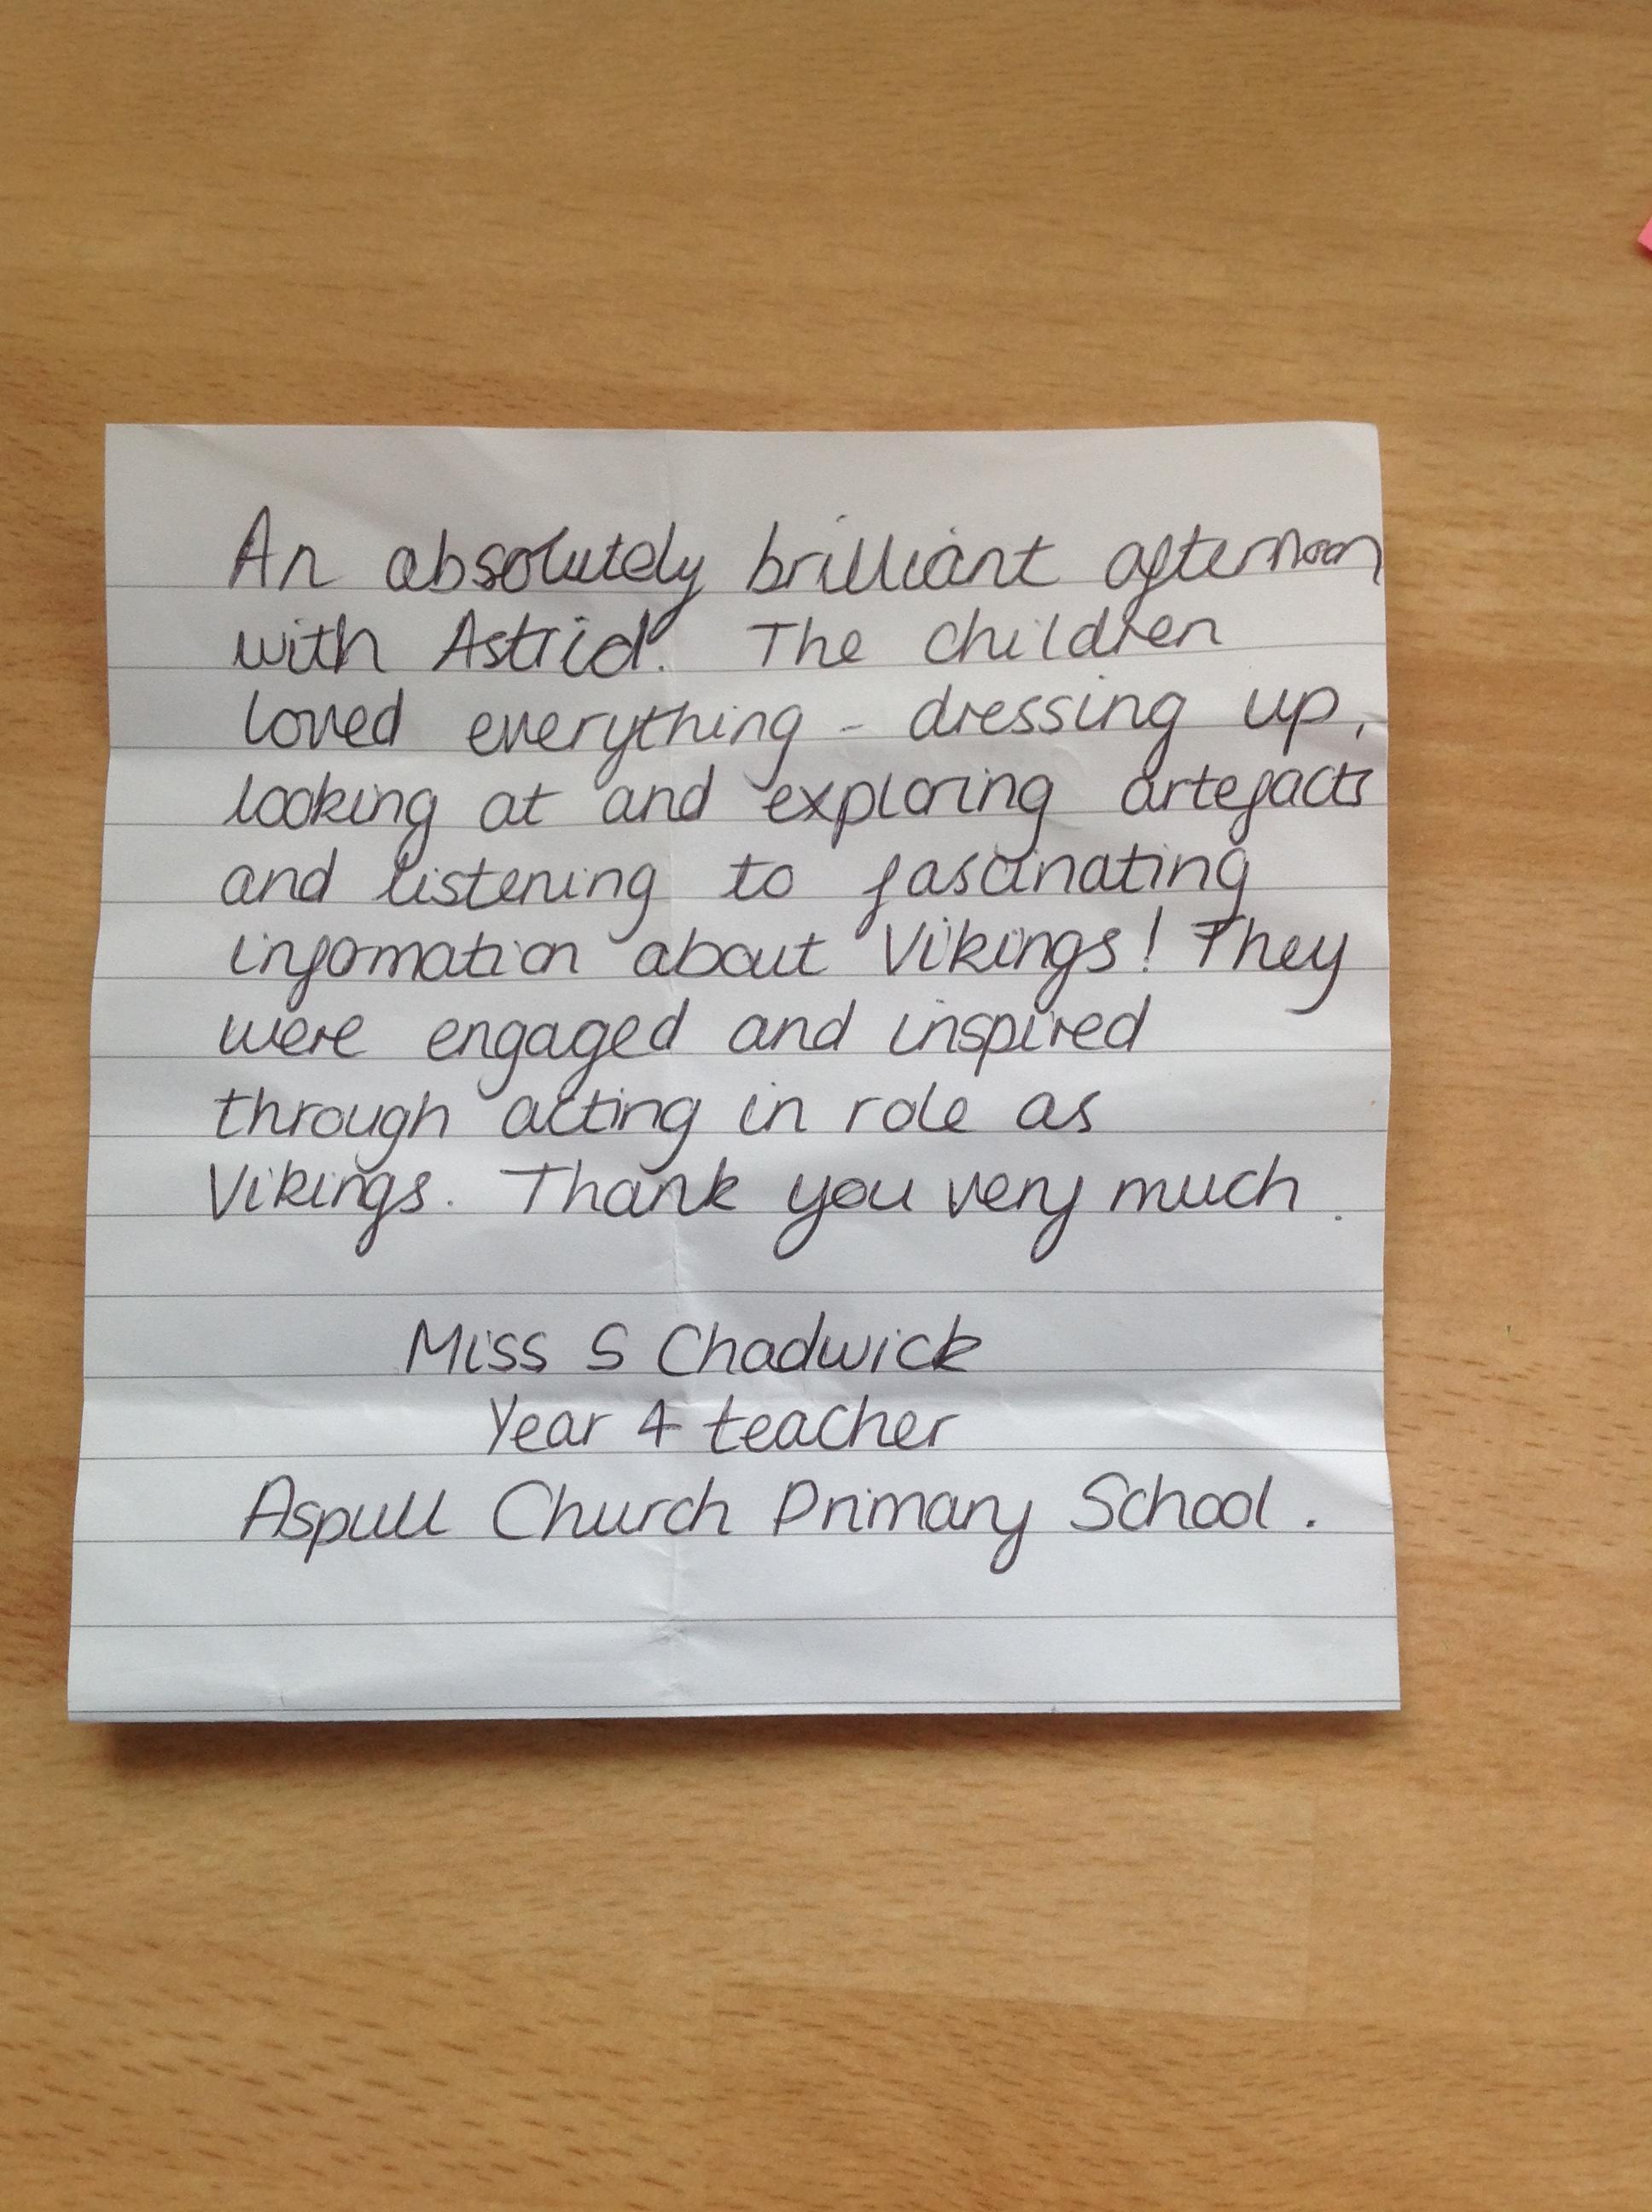 An absolutely brilliant afternoon
with Astrid. The children
loved everything - dressing up,
looking at and exploring artefacts
and listening to fascinating
information about Vikings! They
were engaged and inspired
through acting in role as
Vikings. Thank you very much.
Miss S Chadwick
Year 4 teacher
Aspull Church Primary School.